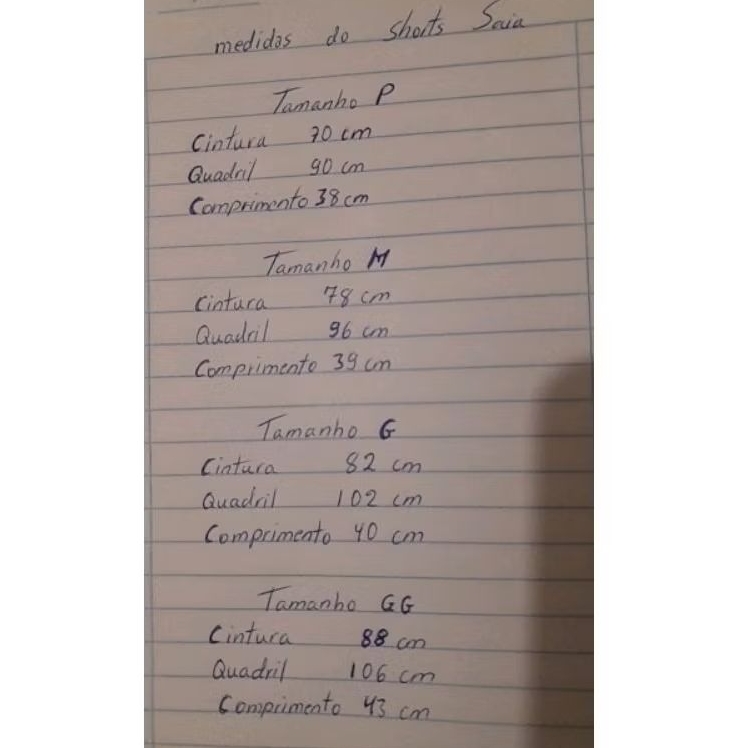 medidas do shorts Saia
Tamanho P
Cintura 70 cm
Quadril 90 cm
Comprimento 38 cm
Tamanho M
Cintura 78 cm
Quadril 96 cm
Comprimento 39 cm
Tamanho G
Cintura 82 cm
Quadril 102 cm
Comprimento 40 cm
Tamanho GG
Cintura 88 cm
Quadril 106 cm
Comprimento 43 cm